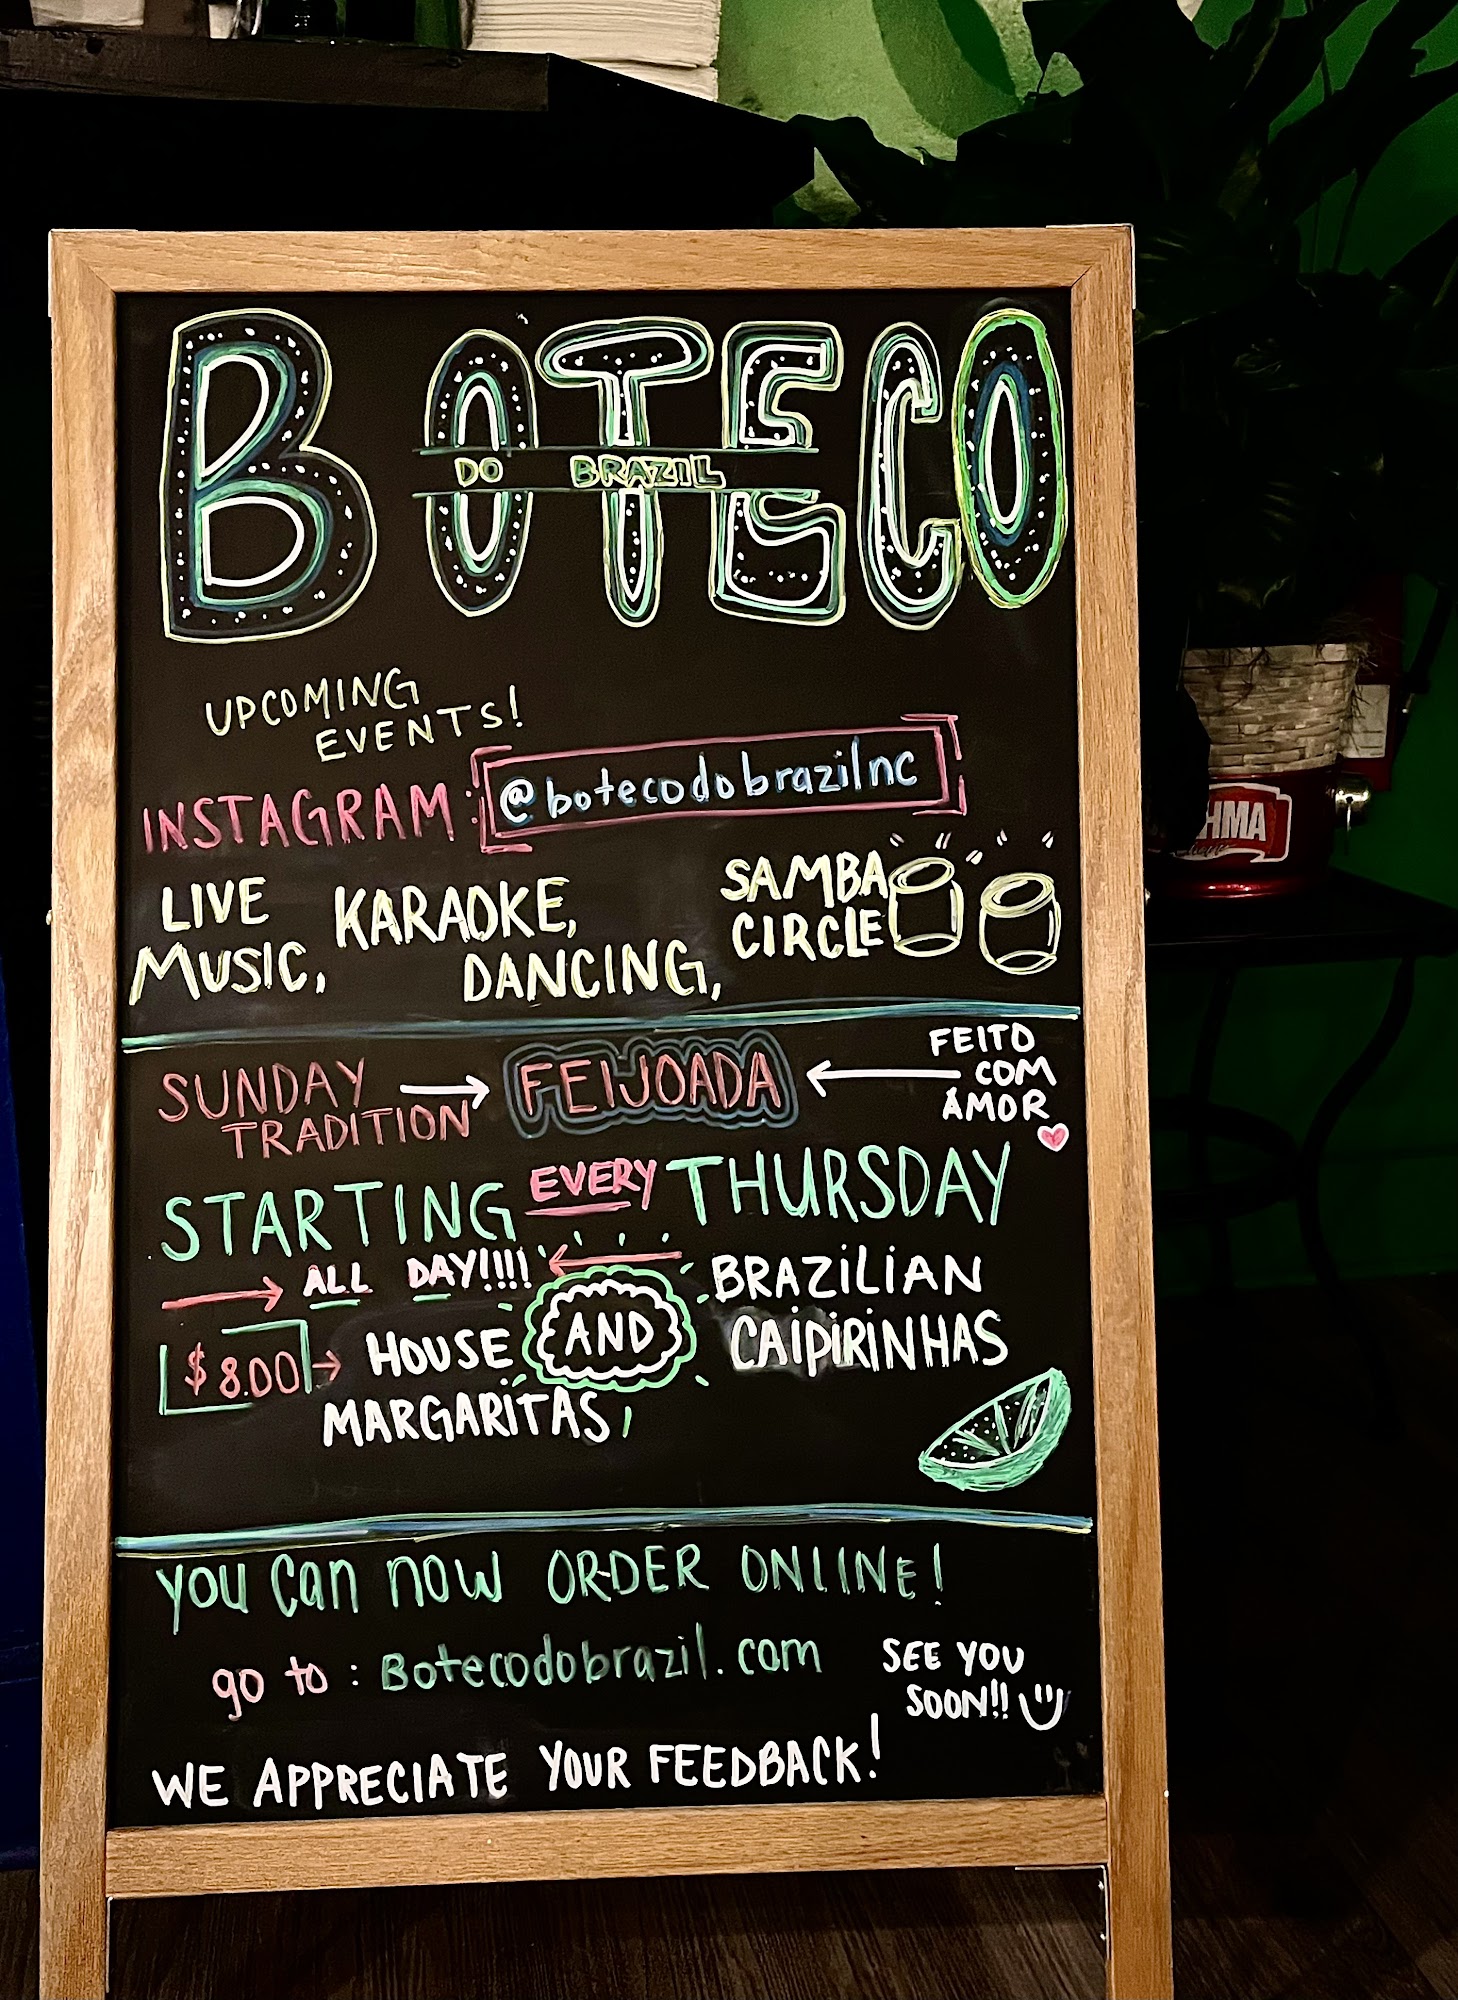 BOTECO
DO BRAZIL
UPCOMING
EVENTS!
INSTAGRAM: @botecodobrazilnc
LIVE
MUSIC,
KARAOKE,
DANCING,
SAMBA
CIRCLE
SUNDAY
TRADITION
→ FEIJOADA ←
FEITO
COM
AMOR
STARTING EVERY THURSDAY
→ ALL DAY!!!! ←
$8.00 → HOUSE
MARGARITAS,
AND
BRAZILIAN
CAIPIRINHAS
you can now ORDER ONLINE!
go to: Botecodobrazil.com
SEE YOU
SOON!!
WE APPRECIATE YOUR FEEDBACK!
HMA